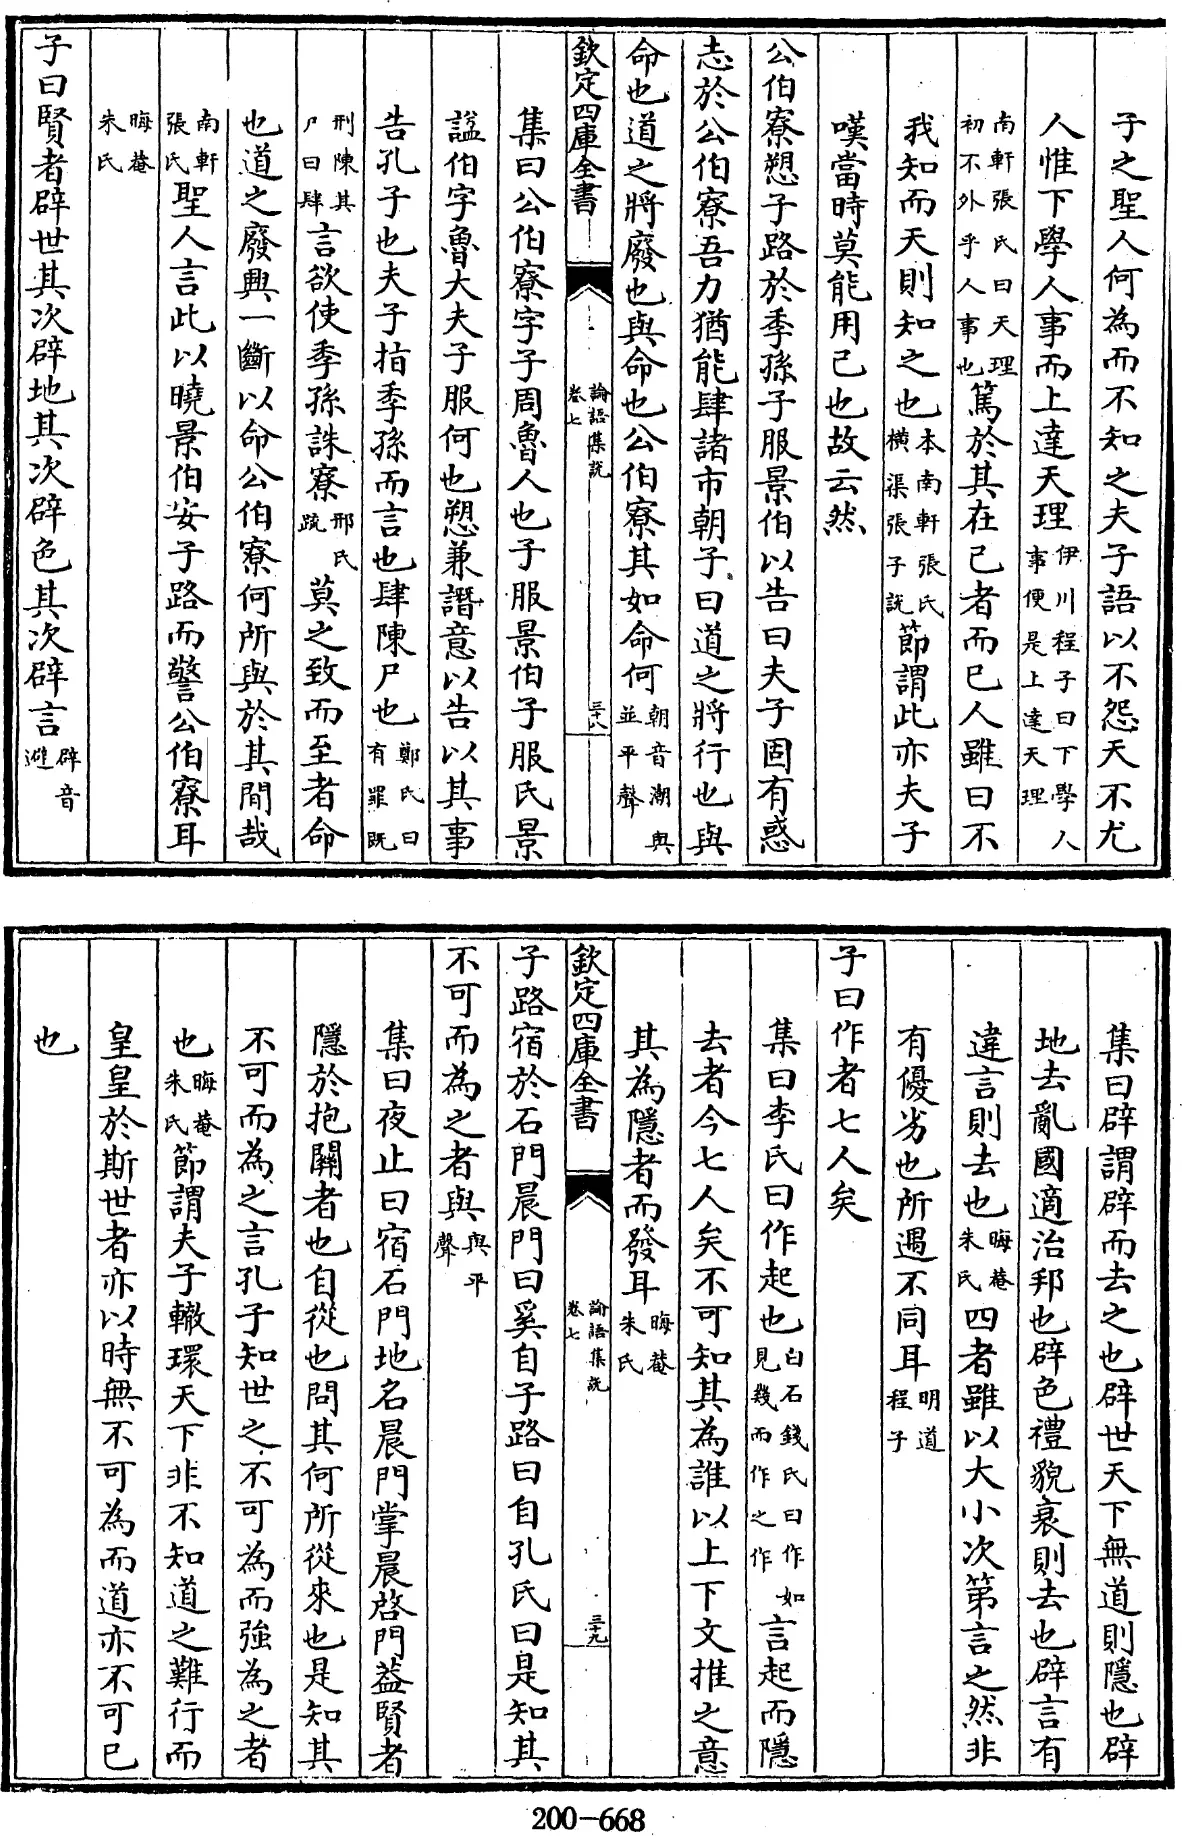 子之聖人何為而不知之夫子語以不怨天不尤
人惟下學人事而上達天理伊川程子曰下學人事便是上達天理
南軒張氏曰天理初不外乎人事也篤於其在己者而已人雖曰不
我知而天則知之也本南軒張氏橫渠張子説節謂此亦夫子
嘆當時莫能用己也故云然
公伯寮愬子路於季孫子服景伯以告曰夫子固有惑
志於公伯寮吾力猶能肆諸市朝子曰道之將行也與
命也道之將廢也與命也公伯寮其如命何朝音潮與並平聲
欽定四庫全書
論語集説
卷七
三十八
集曰公伯寮字子周魯人也子服景伯子服氏景
諡伯字魯大夫子服何也愬兼譖意以告以其事
告孔子也夫子指季孫而言也肆陳尸也鄭氏曰有罪既
刑陳其尸曰肆言欲使季孫誅寮邢氏疏莫之致而至者命
也道之廢興一斷以命公伯寮何所與於其間哉
南軒張氏聖人言此以曉景伯安子路而警公伯寮耳
晦菴朱氏
子曰賢者辟世其次辟地其次辟色其次辟言辟音避
集曰辟謂辟而去之也辟世天下無道則隱也辟
地去亂國適治邦也辟色禮貌衰則去也辟言有
違言則去也晦菴朱氏四者雖以大小次第言之然非
有優劣也所遇不同耳明道程子
子曰作者七人矣
集曰李氏曰作起也白石錢氏曰作如見幾而作之作言起而隱
去者今七人矣不可知其為誰以上下文推之意
其為隱者而發耳晦菴朱氏
欽定四庫全書
論語集説
卷七
三十九
子路宿於石門晨門曰奚自子路曰自孔氏曰是知其
不可而為之者與與平聲
集曰夜止曰宿石門地名晨門掌晨啓門葢賢者
隱於抱關者也自從也問其何所從來也是知其
不可而為之言孔子知世之不可為而強為之者
也晦菴朱氏節謂夫子轍環天下非不知道之難行而
皇皇於斯世者亦以時無不可為而道亦不可已
也
200-668